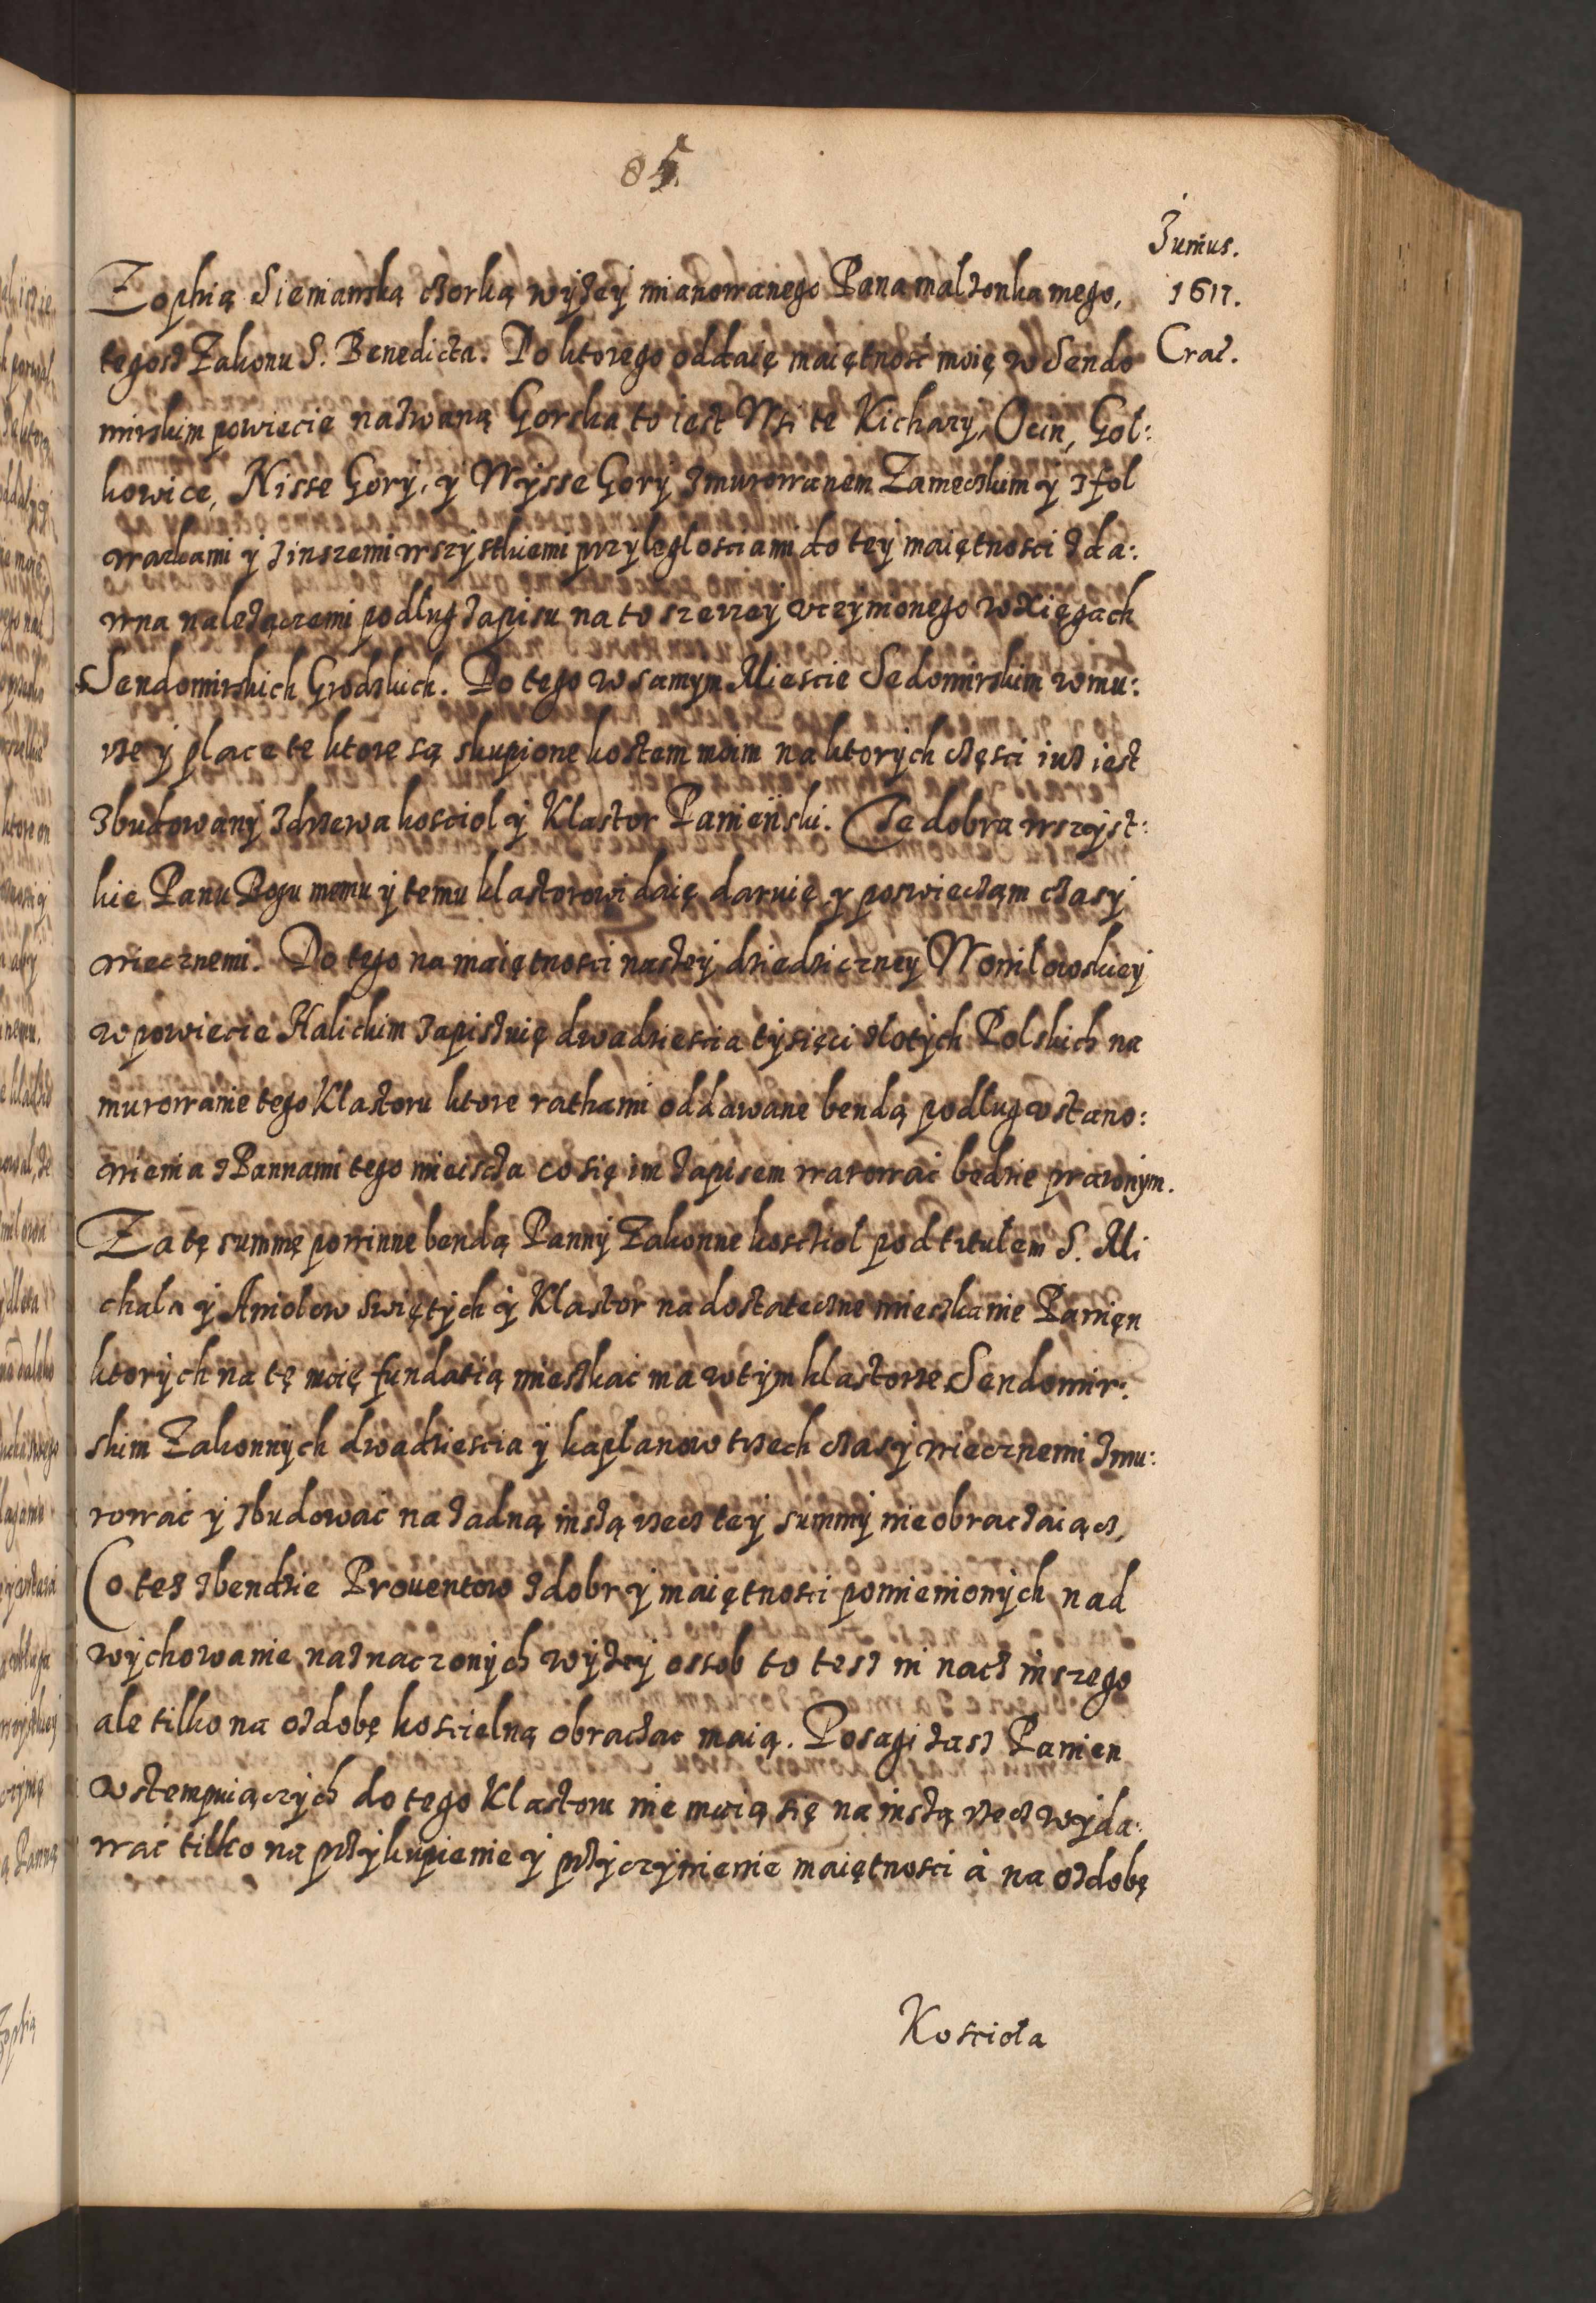 85
Junius.
1617.
Crac.
Zophią Sieniawską czorką wyżey mianowanego Pana małżonka mego,
tegosz Zakonu S. Benedicta. Do ktorego oddaię maiętnosc moię w Sendo
mirskim powiecie nazwaną Gorska to iest Wsi te Kichary, Ocin, Gol:
kowice, Nisse Gory, y Wysse Gory z murowanem Zameczkim y z fol
warkami y z inszemi wszystkiemi przyległosciami do tey maiętnosci z da:
wna należączemi podług zapisu na to szerzey uczymonego w Xięgach
Sendomirskich Grodzkich. Do tego w samym Miescie Sedomirskim w mu:
rze y place te ktore są skupione kostem moim na ktorych częsci iuż iest
zbudowany z drzewa kosciol y Klastor Panieński. Te dobra wszyst:
kie Panu Bogu memu y temu klastorowi daię daruię y poswieczam czasy
wiecznemi. Do tego na maiętnosci naszey dziedziczney Woniłowskiey
w powiecie Halickim zapisuię dwadziescia tysięci złotych Polskich na
murowanie tego Klastoru ktore rathami oddawane bendą podług ustano:
wienia z Pannami tego mieiscza co się im zapisem warować będzie prawnym.
Za tę summę powinne bendą Panny Zakonne kosciol pod titułem S. Mi
chała y Aniołow swiętych y Klastor na dostateczne mieszkanie Panięn
ktorych na tę moię fundatią mieszkać ma w tym klastorze Sendomir:
skim Zakonnych dwadziescia y kapłanow trzech czasy wiecznemi zmu:
rować y zbudować na żadną inszą rzecz tey summy nie obraczaiącz,
Co tesz zbendzie Prouentow z dobr y maiętnosci pomienionych nad
wychowanie naznaczonych wyżey ossob to tesz ni nacz inszego
ale tilko na ozdobę koscielną obraczac maią. Posagi zasz Panien
wstempuiączych do tego Klastoru nie maią się na inszą rzecz wyda:
wać tilko na przykupienie y przyczynienie maiętnosci á na ozdobę
Kosciola